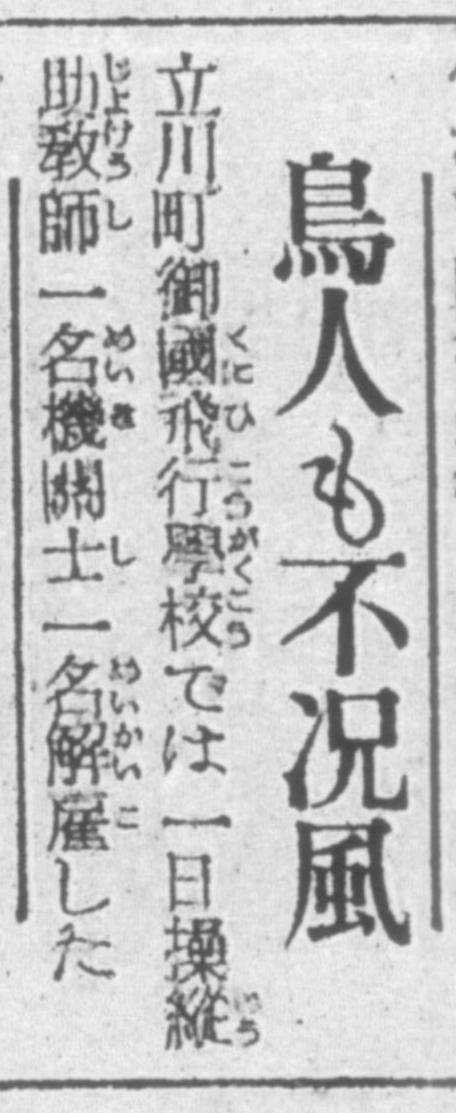 鳥人も不況風
立川町御國飛行學校では一日操縦
助教師一名機關士一名解雇した